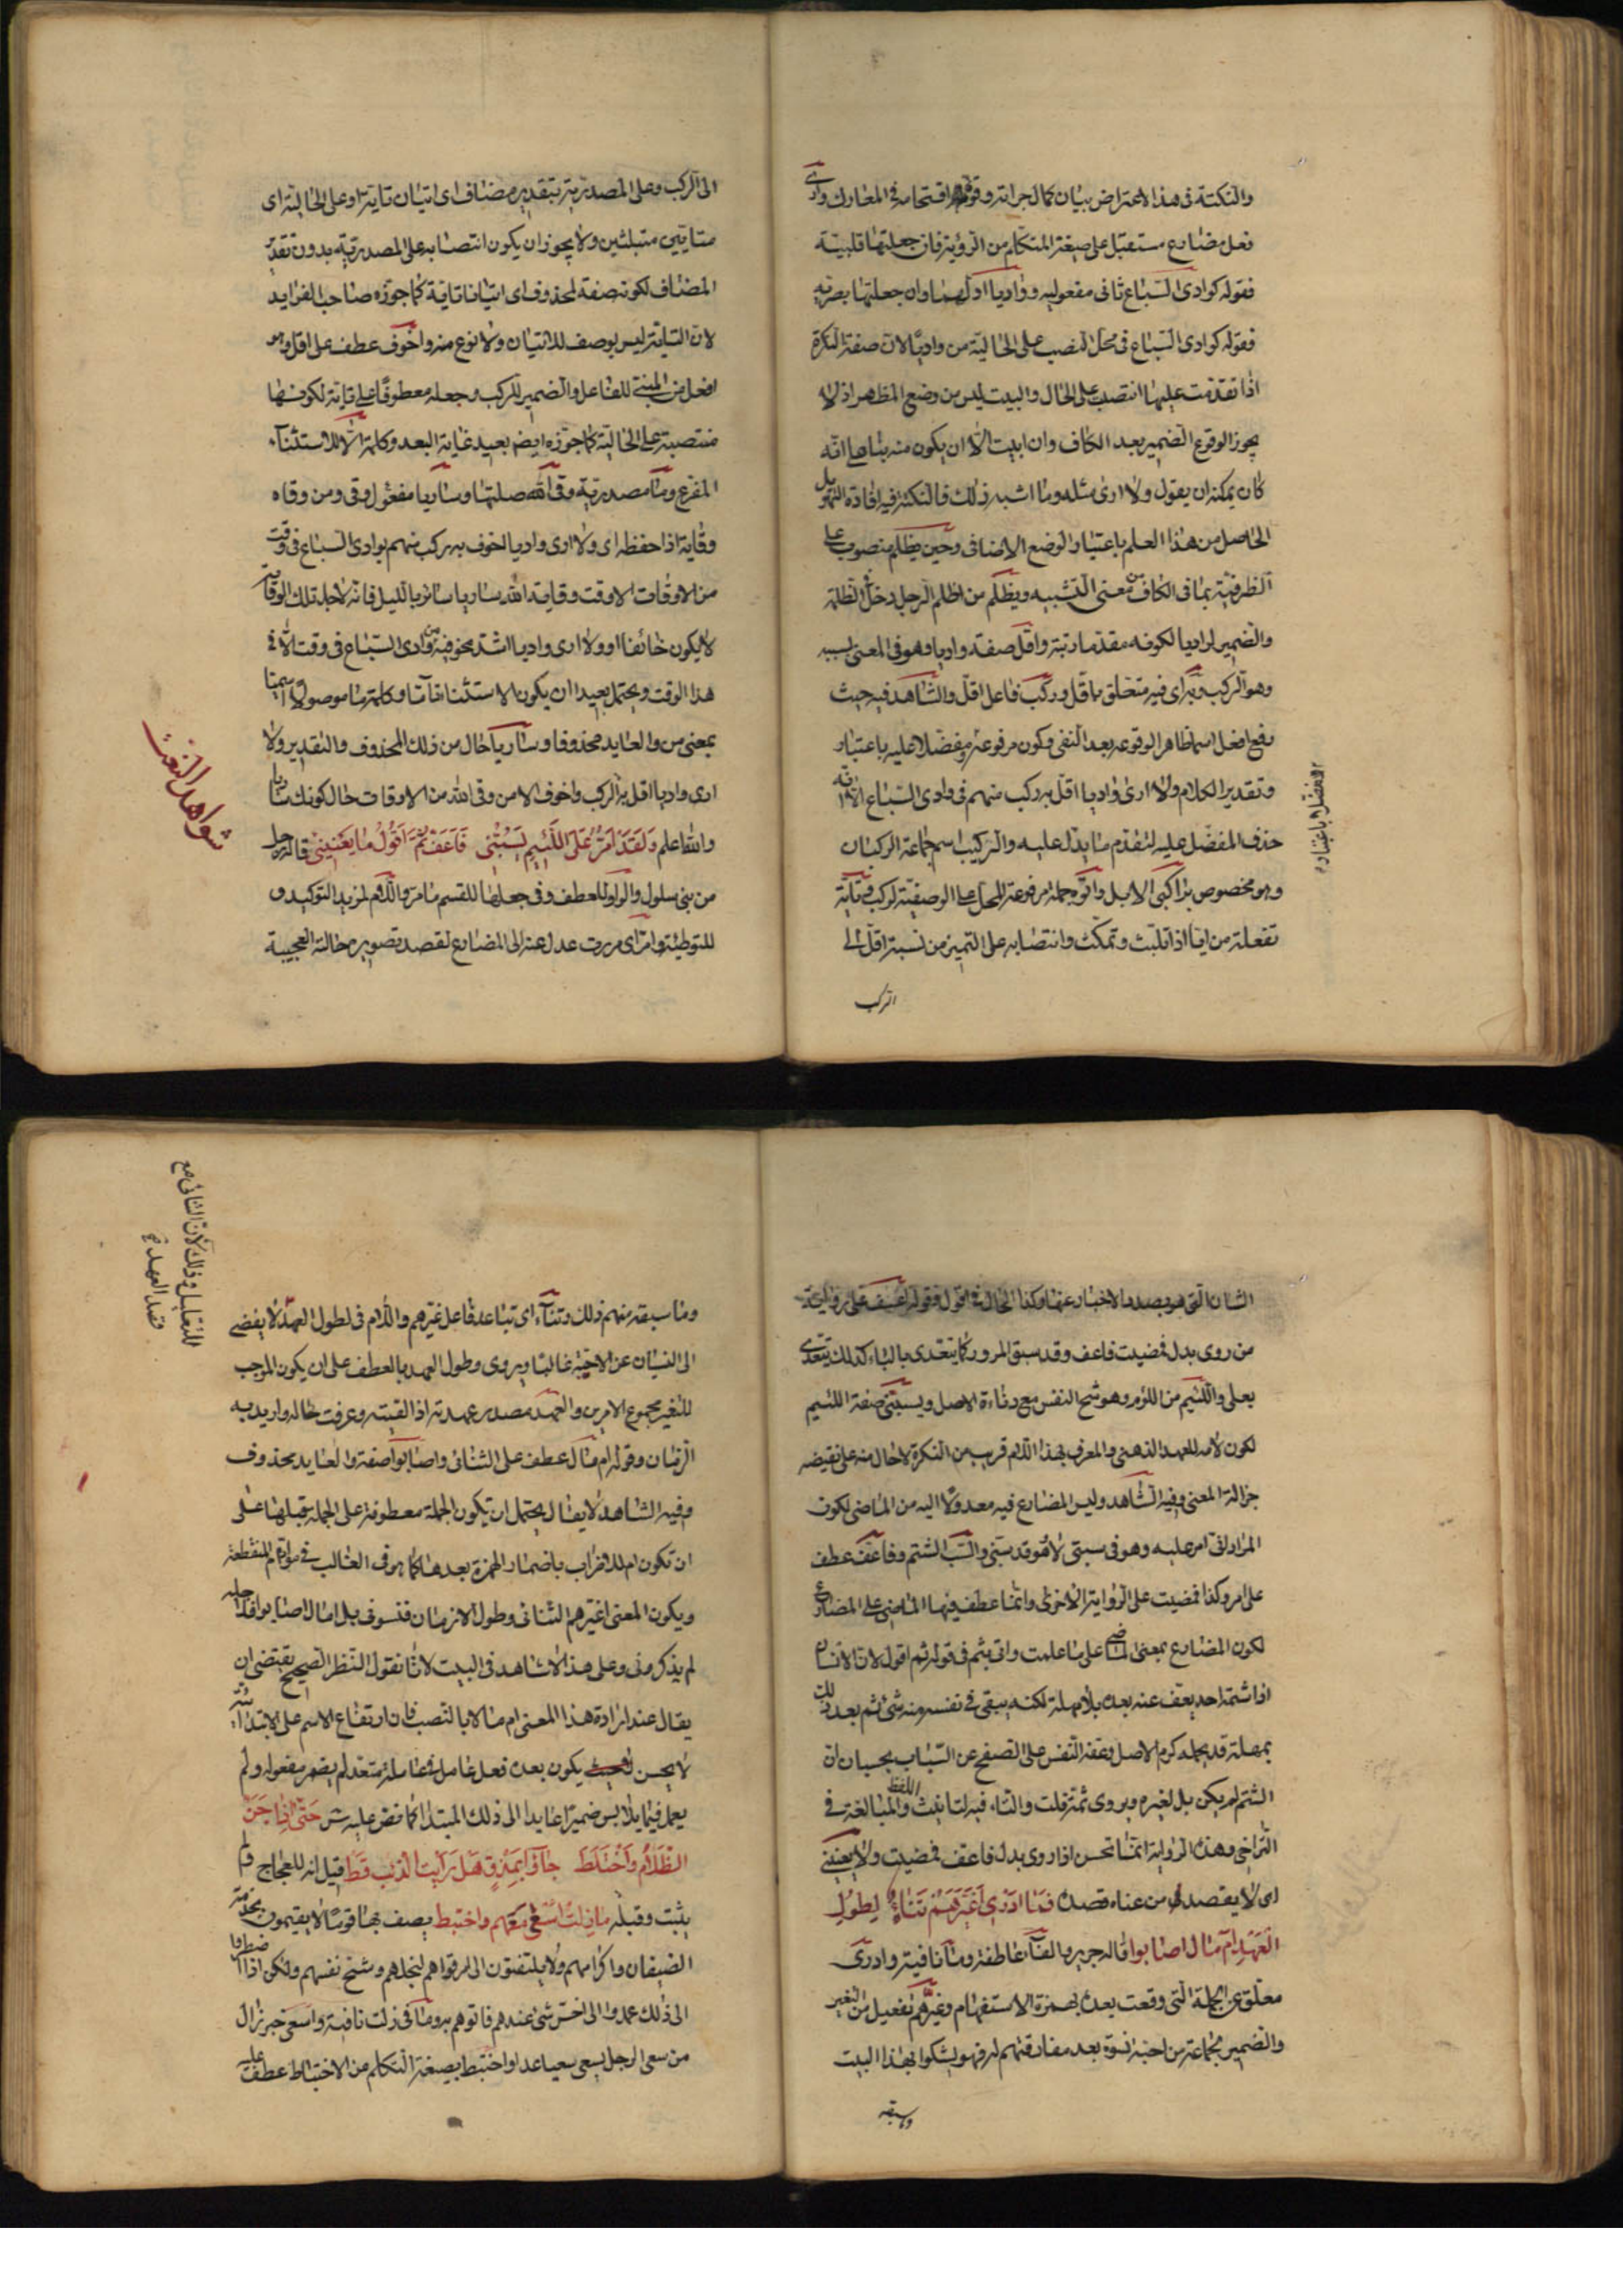 والنكتة فى هذا الاعتراض بيان كمال جرائته وقوة اقتحامه فى المعارك وارى
فعل مضارع مستقبل على صيغة المتكلم من الرؤية فان جعلتها قلبية
فقوله كوادى السباع ثانى مفعوليه وواديا اولهما وان جعلتها بصرية
فقوله كوادى السباع فى محل النصب على الحالية من واديا لان صفة النكرة
اذا تقدمت عليها انتصب على الحال والبيت ليس من وضع المظهر اذ لا
يجوز الوقوع الضمير بعد الكاف وان ابيت الا ان يكون منه بناء على انه
كان يمكنه ان يقول ولا ارى مثله وما اشبه ذلك فالنكتة فيه افادة التهويل
الحاصل من هذا العلم باعتبار الوضع الاضافى وحين يظلم منصوب على
الظرفية بما فى الكاف من معنى التشبيه ويظلم من اظلم الرجل دخل فى الظلمة
والضمير لواديا لكونه مقدما رتبة واقل صفة واديا وهو فى المعنى لسببه
وهو الركب وبه اى فيه متعلق باقل وركب فاعل اقل والشاهد فيه حيث
رفع افعل اسما ظاهرا لوقوعه بعد النفى وكون مرفوعه مفضلا عليه باعتبار
وتقدير الكلام ولا ارى واديا اقل به ركب منهم فى وادى السباع الا انه
حذف المفضل عليه لتقدم ما يدل عليه والركب اسم جماعة الركبان
وهو مخصوص براكبى الابل واتوه جملة مرفوعة المحل على الوصفية لركب وتاية
تفعلة من ايا اذا تلبث وتمكث وانتصابه على التميز من نسبة اقل الى
الركب
المفضل باعتباره
الى الركب وعلى المصدرية بتقدير مضاف اى اتيان تاية او على الحالية اى
متايين متبلثين ولا يجوز ان يكون انتصابه على المصدرية بدون تقدير
المضاف لكونه صفة لمحذوف اى اتيانا تاية كما جوزه صاحب الفرايد
لان التاية ليس بوصف للاتيان ولا نوع منه واخوف عطف على اقل وهو
افعل من المبنى للفاعل والضمير للركب وجعله معطوفا على تاية لكونها
منتصبة على الحالية كما جوزه ايض بعيد غاية البعد وكلمة الا للاستثناء
المفرغ وما مصدرية وقى الله صلتها وساريا مفعول وقى ومن وقاه
وقاية اذا حفظه اى ولا ارى واديا اخوف به ركب منهم بوادى السباع فى وقت
من الاوقات الا وقت وقاية الله ساريا سائرا بالليل فانه لاجل تلك الوقاية
لا يكون خائفا او ولا ارى واديا اشد مخوفية من وادى السباع فى وقت الا فى
هذا الوقت ويحتمل بعيدا ان يكون الاستثناء تاما وكلمة ما موصولا اسميا
بمعنى من والعايد محذوفا وساريا حال من ذلك المحذوف والتقدير ولا
ارى واديا اقل به الركب واخوف الا من وقى الله من الاوقات حال كونك ساريا
والله اعلم وَلَقَدْ اَمُرُّ عَلَى اللَّئِيمِ يَسُبُّنِى فَاَعَفُّ ثُمَّ اَقُولُ مَا يَعْنِينِى قاله رجل
من بنى سلول والواو للعطف وفى جعلها للقسم ما مر واللام لمزيد التوكيد و
للتوطئة وامر اى مررت عدل عنه الى المضارع لقصد تصوير حالته العجيبة
شواهد النعت
الشان التى هو بصدد الاخبار عنها وكذا الحال فى اقول وقوله اعف على رواية
من روى بدل فمضيت فاعف وقد سبق المرور كما يتعدى بالباء كذلك يتعدى
بعلى واللئيم من اللؤم وهو شح النفس مع دناءة الاصل ويسبنى صفة اللئيم
لكون لامه للعهد الذهنى والمعرف بهذا اللام قريب من النكرة لا حال منه على نقيضه
جزالة المعنى وفيه الشاهد وليس المضارع فيه معدولا اليه من الماضى لكون
المراد انى امر عليه وهو فى سبتى لا هو قد سبنى والسب الشتم وفاعف عطف
على امر وكذا فمضيت على الرواية الاخرى وانما عطف فيها الماضى على المضارع
لكون المضارع بمعنى الماضى على ما علمت واتى بثم فى قوله ثم اقول لان الانسان
اذا شتمه احد يعف عنه بعده بلا مهلة لكنه يبقى فى نفسه منه شئ ثم بعد ذلك
بمهلة قد يحمله كرم الاصل وعفة النفس على الصفح عن السباب بحسبان ان
الشتم لم يكن بل لغيره ويروى ثمة قلت والتاء فيه لتانيث اللفظ والمبالغة فى
التراخى وهذه الرواية انما تحسن اذا روى بدل فاعف فمضيت ولا يعنينى
اى لا يقصدنى من عناه قصده فَمَا اَدْرِى اَغَيَّرَهُمْ تَنَاءٍ لِطُولِ
الْعَهْدِ اَمْ مَالٌ اصابوا قاله جرير الفاء عاطفة وما نافية وادرى
معلق عن الجملة التى وقعت بعده بهمزة الاستفهام وغيرهم تفعيل من الغير
والضمير لجماعة من احبته نسوه بعد مفارقتهم له فهو يشكوا بهذا البيت
وما سبقه
وما سبقه منهم ذلك وتناء اى تباعد فاعل غيرهم واللام فى لطول العهد لا يفضى
الى النسيان عن الاحبة غالبا ويروى وطول العهد بالعطف على ان يكون الموجب
للتغير مجموع الامرين والعهد مصدر عهدته اذا لقيته وعرفت حاله واريد به
الزمان وقوله ام مال عطف على الثنائى واصابوا صفة والعايد محذوف
وفيه الشاهد لا يقال يحتمل ان يكون الجملة معطوفة على الجملة قبلها على
ان تكون ام للاضراب باضمار الهمزة بعدها كما هو فى الغالب فى مواقع المنقطعة
ويكون المعنى اغيرهم التنائى وطول الازمان فنسونى بل امالا اصابوا فلاجله
لم يذكرونى وعلى هذا لا شاهد فى البيت لانا نقول النظر الصحيح يقتضى ان
يقال عند ارادة هذا المعنى ام مالا بالنصب فان ارتفاع الاسم على الابتداء
لا يحسن يكون بعده فعل عامل متعد لم يضمر مفعوله ولم
يعمل فيما يلابس ضميرا عايدا الى ذلك المبتدا كما نص عليه س حَتَّى اِذَا جَنَّ
الظَّلَامُ وَاخْتَلَطَ جَاؤُا بِمَذْقٍ هَلْ رَاَيْتَ الذِّئْبَ قَطُّ قيل انه للعجاج ولم
يثبت وقبله مازلت اسعى معهم واختبط يصف بها قوما لا يقيمون بخدمة
الضيفان واكرامهم ولا يلتفتون الى قراهم لبخلهم وشح نفسهم ولكن اذا اضطروا
الى ذلك عمدوا الى اخس شئ عندهم فاتوهم به وما فى زلت نافية واسعى خبر زال
من سعى الرجل يسعى سعيا عدا واختبط بصيغة المتكلم من الاختباط عطف عليه
للتعليل وذلك لان التنائى مع
قصد العهد